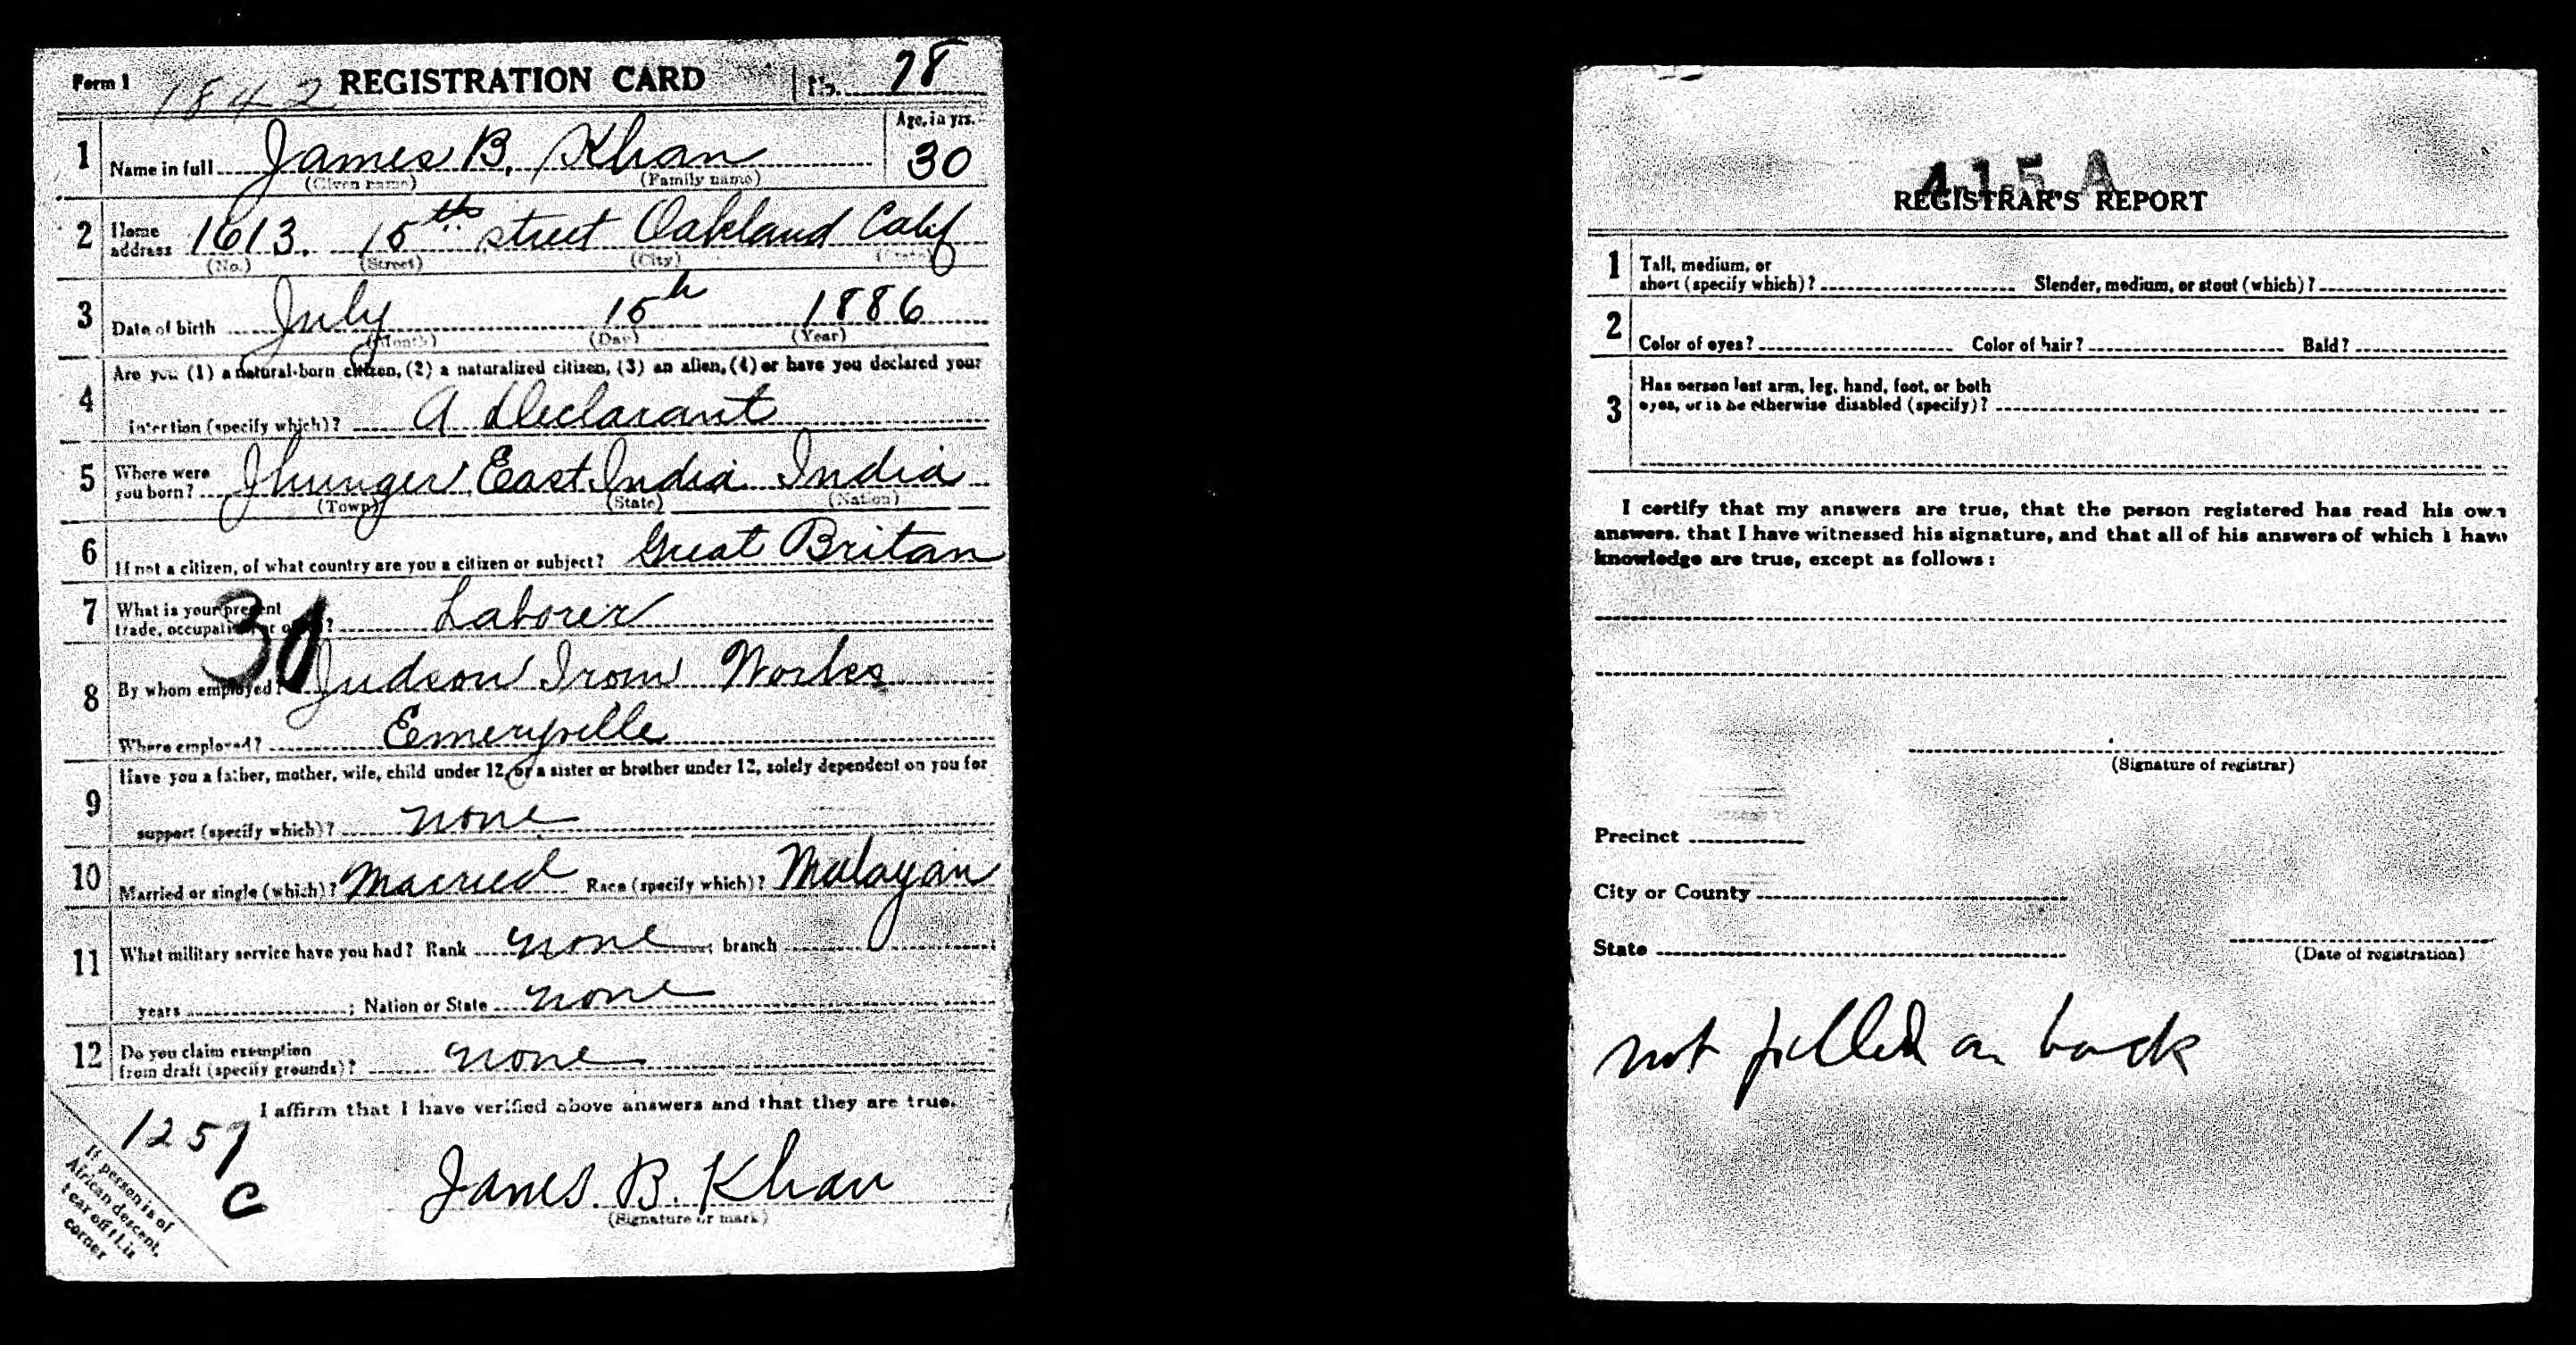 Form 1 1842 REGISTRATION CARD No. 78
Age, in yrs.
1 Name in full James B. Khan 30
(Given name) (Family name)
2 Home address 1613. 15th street Oakland Calif
(No.) (Street) (City) (State)
3 Date of birth July 15th 1886
(Month) (Day) (Year)
4 Are you (1) a natural-born citizen, (2) a naturalized citizen, (3) an alien, (4) or have you declared your
intention (specify which)? A Declarant
5 Where were you born? Jhunger East India India
(Town) (State) (Nation)
6 If not a citizen, of what country are you a citizen or subject? Great Britan
7 What is your present
trade, occupation, or office? Laborer
30
8 By whom employed? Judson Iron Works
Where employed? Emeryville
9 Have you a father, mother, wife, child under 12, or a sister or brother under 12, solely dependent on you for
support (specify which)? none
10 Married or single (which)? Married Race (specify which)? Malayan
11 What military service have you had? Rank none branch
years ; Nation or State none
12 Do you claim exemption
from draft (specify grounds)? none
I affirm that I have verified above answers and that they are true.
1257
C
If person is of
African descent,
tear off this
corner
James. B. Khan
(Signature or mark)
415 A
REGISTRAR'S REPORT
1 Tall, medium, or
short (specify which)? Slender, medium, or stout (which)?
2 Color of eyes? Color of hair? Bald?
3 Has person lost arm, leg, hand, foot, or both
eyes, or is he otherwise disabled (specify)?
I certify that my answers are true, that the person registered has read his own
answers, that I have witnessed his signature, and that all of his answers of which I have
knowledge are true, except as follows:
(Signature of registrar)
Precinct
City or County
State
(Date of registration)
not filled on back